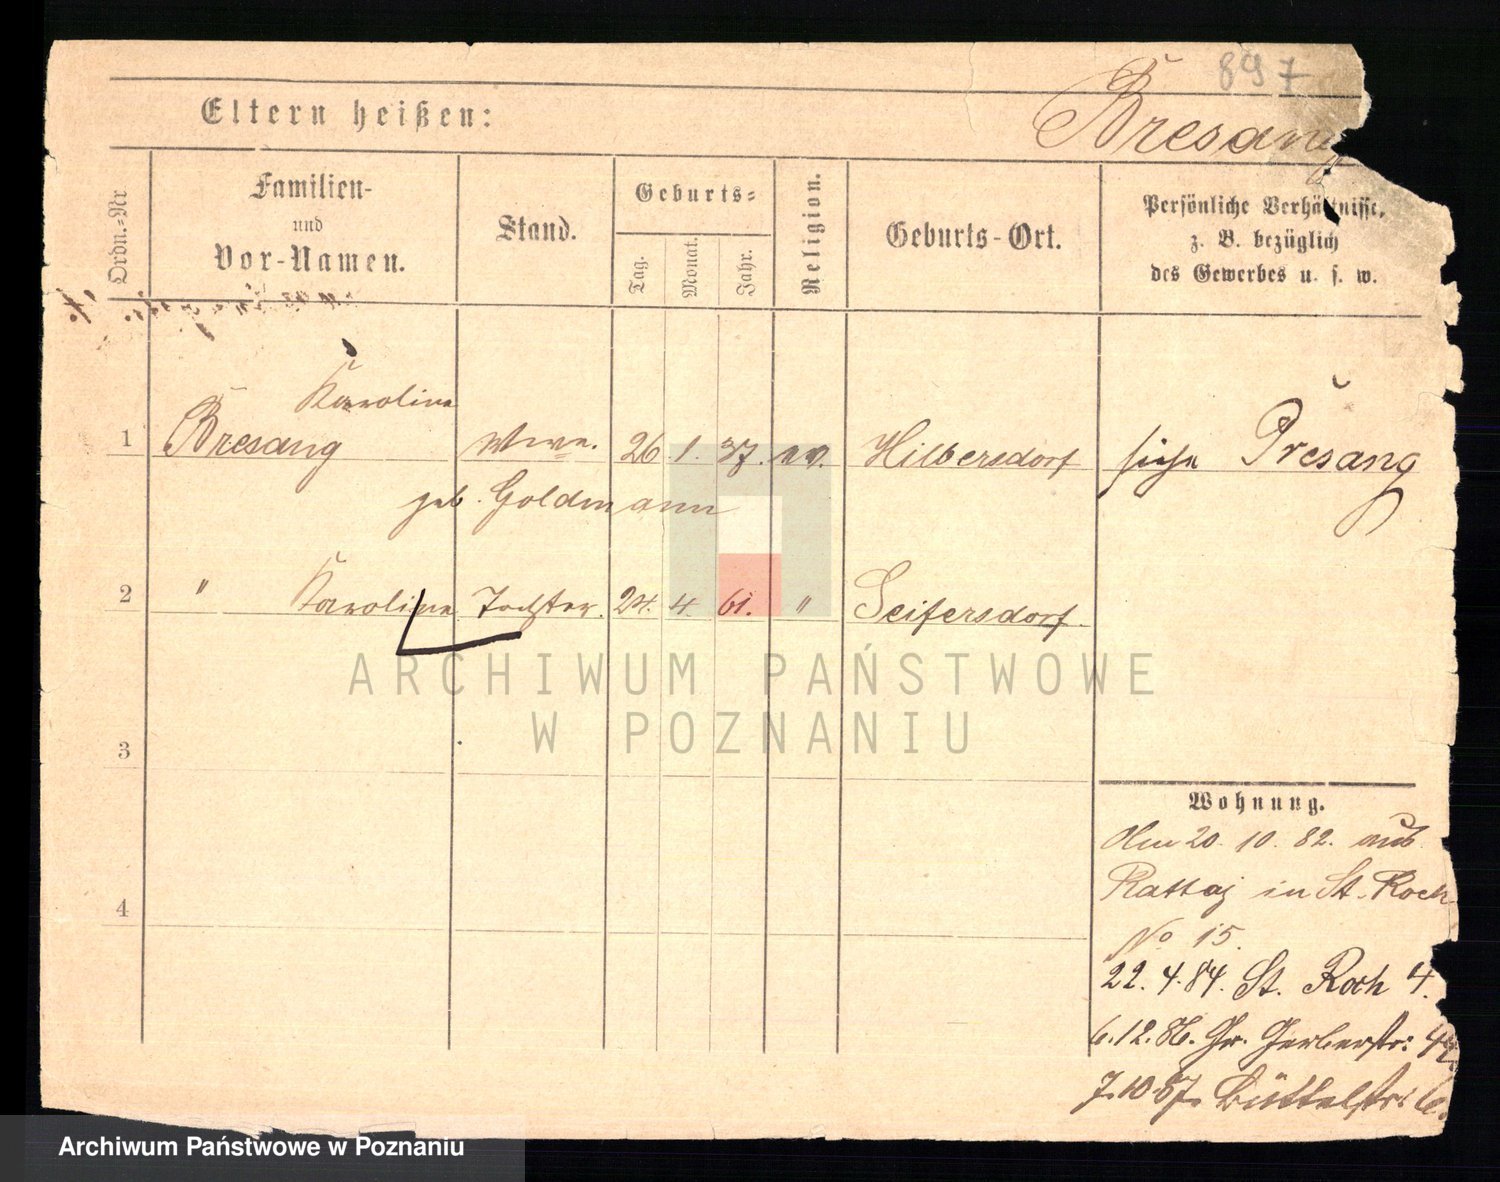 897
Eltern heißen:
Bresang
Ordn.-Nr.
Familien-
und
Vor-Namen.
Stand.
Geburts-
Tag.
Monat.
Jahr.
Religion.
Geburts-Ort.
Persönliche Verhältnisse,
z. B. bezüglich
des Gewerbes u. s. w.
Karoline
1 Bresang Wwe. 26. 1. 37. ev. Hilbersdorf siehe Presang
geb. Goldmann
2 " Karoline Tochter. 24. 4. 61. " Seifersdorf.
3
4
Wohnung.
Am 20. 10. 82. aus
Rattaj in St. Roch
No 15.
22. 4. 84. St. Roch 4.
6. 12. 86. Gr. Gerberstr:
7. 10. 87. Büttelstr: 6.
ARCHIWUM PAŃSTWOWE
W POZNANIU
Archiwum Państwowe w Poznaniu